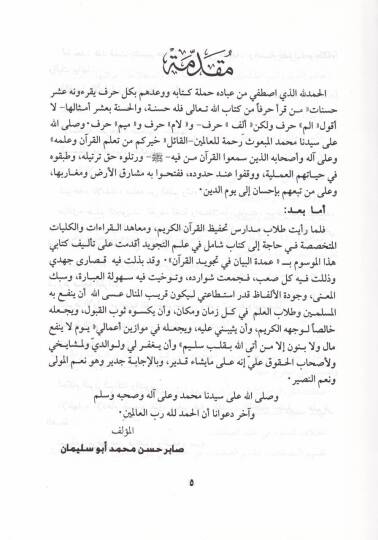 مُقَدِّمَةٌ
الحمدلله الذي اصطفي من عباده حملة كتابه ووعدهم بكل حرف يقرءونه عشر
حسنات» من قرأ حرفاً من كتاب الله تعالى فله حسنة، والحسنة بعشر أمثالها- لا
أقول» الم» حرف ولكن« ألف » حرف- و« لام» حرف و« ميم» حرف. وصلى الله
على سيدنا محمد المبعوث رحمة للعالمين-القائل« خيركم من تعلم القرآن وعلمه»
وعلى آله وأصحابه الذين سمعوا القرآن من فيه-ﷺ- ورتلوه حق ترتيله، وطبقوه
في حياتهم العملية، ووقفوا عند حدوده، ففتحوا به مشارق الأرض ومغاربها،
وعلى من تبعهم بإحسان إلى يوم الدين.
أما بعد:
فلما رأيت طلاب مدارس تحفيظ القرآن الكريم، ومعاهد القراءات والكليات
المتخصصة في حاجة إلى كتاب شامل في علم التجويد أقدمت على تأليف كتابي
هذا الموسوم بـ « عمدة البيان في تجويد القرآن». وقد بذلت فيه قصارى جهدي
وذللت فيه كل صعب، فجمعت شوارده، وتوخيت فيه سهولة العبارة، وسبك
المعنى، وجودة الألفاظ قدر استطاعتي ليكون قريب المنال عسى الله أن ينفع به
المسلمين وطلاب العلم في كل زمان ومكان، وأن يكسوه ثوب القبول، ويجعله
خالصاً لوجهه الكريم، وأن يثيبني عليه، ويجعله في موازين أعمالي« يوم لا ينفع
مال ولا بنون إلا من أتى الله بقلب سليم» وأن يغفر لي ولوالديّ ولمشايخي
ولأصحاب الحقوق عليّ إنه على مايشاء قدير، وبالإجابة جدير وهو نعم المولى
ونعم النصير.
وصلى الله على سيدنا محمد وعلى آله وصحبه وسلم
وآخر دعوانا أن الحمد لله رب العالمين.
المؤلف
صابر حسن محمد أبو سليمان
٥